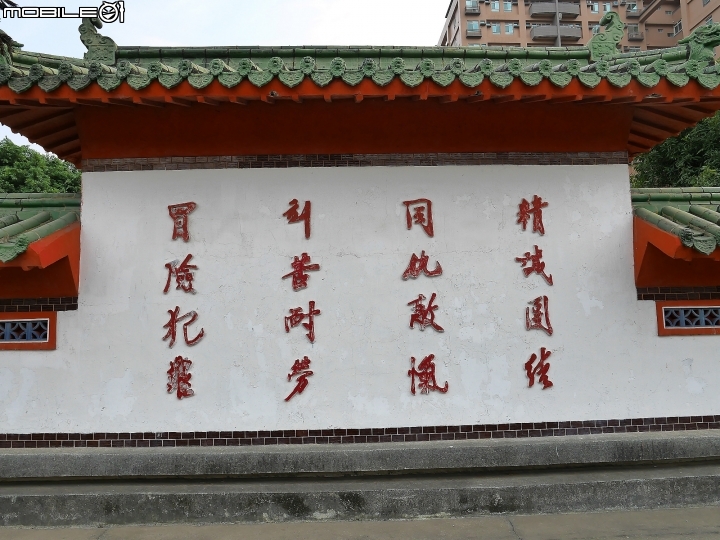 MOBILE01
精誠團結
同仇敵愾
刻苦耐勞
冒險犯難